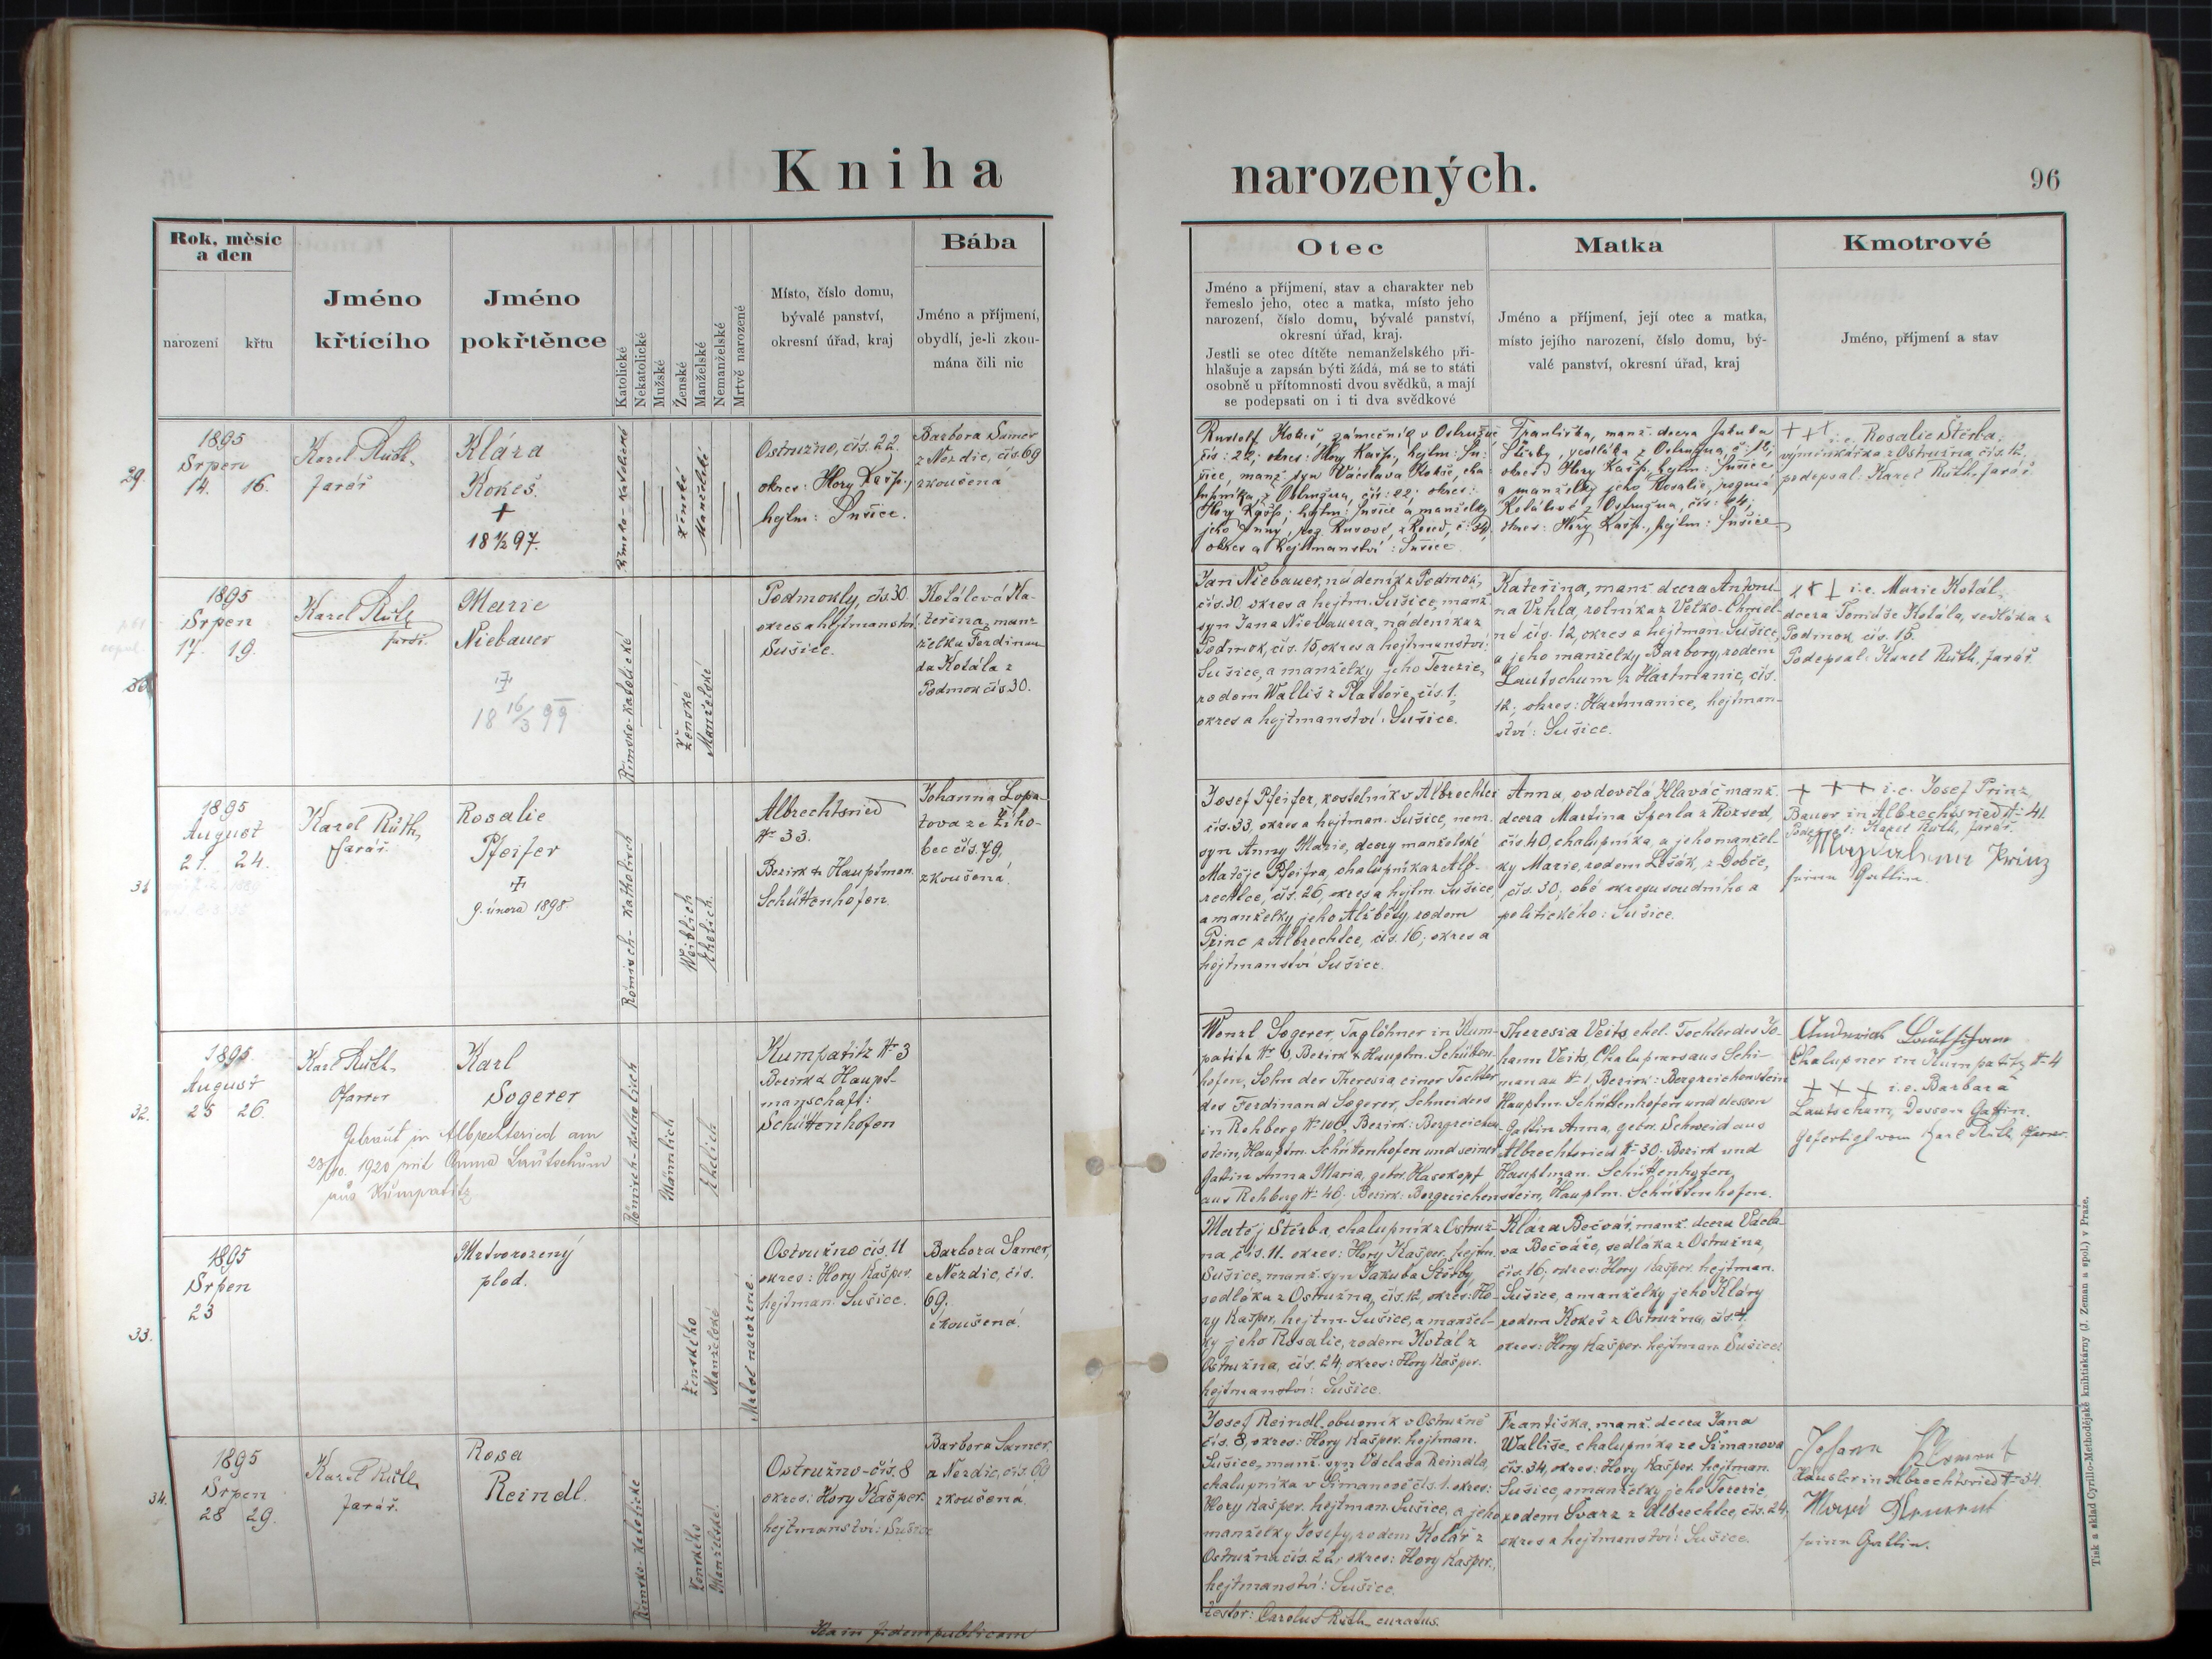 Kniha narozených.
96
Rok, měsíc
a den
narození
křtu
Jméno
křtícího
Jméno
pokřtěnce
Katolické
Nekatolické
Mužské
Ženské
Manželské
Nemanželské
Mrtvě narozené
Místo, číslo domu,
bývalé panství,
okresní úřad, kraj
Bába
Jméno a příjmení,
obydlí, je-li zkou-
mána čili nic
Otec
Jméno a příjmení, stav a charakter neb
řemeslo jeho, otec a matka, místo jeho
narození, číslo domu, bývalé panství,
okresní úřad, kraj.
Jestli se otec dítěte nemanželského při-
hlašuje a zapsán býti žádá, má se to státi
osobně u přítomnosti dvou svědků, a mají
se podepsati on i ti dva svědkové
Matka
Jméno a příjmení, její otec a matka,
místo jejího narození, číslo domu, bý-
valé panství, okresní úřad, kraj
Kmotrové
Jméno, příjmení a stav
29.
1895
Srpen
14. 16.
Karel Rüth,
farář
Klára
Kokeš
+
18 1/2 97.
Římsko-katolické
Ženské
Manželské
Ostružno, čís. 22.
okres: Hory Kašp.,
hejtm: Sušice.
Barbora Samer
z Nezdic, čís. 69
zkoušená
Rudolf Kokeš, zámečník v Ostružně
čís: 22; okres: Hory Kašp., hejtm: Su-
šice, manž. syn Václava Kokše, cha-
lupníka z Ostružna, čís: 22; okres:
Hory Kašp. hejtm: Sušice a manželky
jeho Anny, roz. Rusové, z č: 34,
okres a hejtmanství: Sušice
Františka, manž. dcera Jakuba
Štěrby, sedláka z Ostružna, č: 12;
okres Hory Kašp., hejtm: Sušice
a manželky jeho Rosalie, rozené
Kotálové z Ostružna, čís: 24;
okres: Hory Kašp., hejtm: Sušice
+++ i.e. Rosalie Štěrba,
výměnkářka z Ostružna, čís. 12,
podepsal: Karel Rüth, farář
30.
1895
Srpen
17. 19.
Karel Rüth
farář.
Marie
Niebauer
18 16/3 99
Římsko-katolické
Ženské
Manželské
Podmokly, čís. 30
okres a hejtmanství
Sušice.
Kotálová Ka-
teřina, man-
želka Ferdinan-
da Kotála z
Podmok čís 30.
Jan Niebauer, nádeník z Podmok,
čís. 30, okres a hejtm. Sušice, manž.
syn Jana Niebauera, nádeníka z
Podmok, čís. 15, okres a hejtmanství:
Sušice, a manželky jeho Terezie,
rodem Walliš z Platoře, čís. 1,
okres a hejtmanství: Sušice.
Kateřina, manž. dcera Antoní-
na Vrhla, rolníka z Velko-Chmel-
né čís. 12, okres a hejtman. Sušice,
a jeho manželky Barbory, rodem
Lautschum, z Hartmanic, čís.
12; okres: Hartmanice, hejtman-
ství: Sušice.
+++ i.e. Marie Kotál
dcera Tomáše Kotála, sedláka z
Podmok čís. 15.
Podepsal: Karel Rüth, farář.
31
1895
August
21. 24.
Karel Rüth,
farář.
Rosalie
Pfeifer
9. února 1898.
Römisch-katholisch
Weiblich
Ehelich.
Albrechtsried
No 33.
Bezirk & Hauptman.
Schüttenhofen.
Johanna Lopa-
tova ze Žiho-
bec čís. 79,
zkoušená.
Josef Pfeifer, kostelník v Albrechtci
čís. 33, okres a hejtman. Sušice, nem.
syn Anny Marie, dcery manželské
Matěje Pfeifra, chalupníka z Alb-
rechtce, čís. 26, okres a hejtm. Sušice,
a manželky jeho Alžběty, rodem
Princ z Albrechtce, čís. 16; okres a
hejtmanství Sušice.
Anna, ovdovělá Hlaváč manž.
dcera Martina Sperla z Rozsed,
čís. 40, chalupníka, a jeho manžel-
ky Marie, rodem Lišák, z Dobče,
čís. 30; obé okresu soudního a
politického: Sušice.
+++ i.e. Josef Prinz,
Bauer in Albrechtsried No 41.
Podepsal: Karel Rüth, farář.
Magdalena Prinz
seine Gattin.
32.
1895.
August
25 26.
Karl Rüth,
Pfarrer
Karl
Sogerer
Getraut in Albrechtsried am
23/10. 1920 mit Anna Lautschum
aus Kumpatitz
Römisch-katholisch
Männlich
Ehelich
Kumpatitz No 3
Bezirk & Haupt-
manschaft:
Schüttenhofen
Wenzl Sogerer, Taglöhner in Kum-
patitz No 3, Bezirk & Hauptm. Schütten-
hofen, Sohn der Theresia, einer Tochter
des Ferdinand Sogerer, Schneiders
in Rehberg No 106, Bezirk: Bergreichen-
stein, Hauptm. Schüttenhofen und seiner
Gattin Anna Maria, gebor. Hasekopf
aus Rehberg No 46; Bezirk: Bergreichenstein, Hauptm. Schüttenhofen.
Theresia Veits, ehel. Tochter des Jo-
hann Veits, Chalupners aus Schi-
manau No 1, Bezirk: Bergreichenstein
Hauptm. Schüttenhofen und dessen
Gattin Anna, gebor. Schweid aus
Albrechtsried No 30. Bezirk und
Hauptman. Schüttenhofen,
Andreas Lautscham
Chalupner in Kumpatitz No 4
+++ i.e. Barbara
Lautscham, Dessen Gattin.
Gefertigt vom Karl Rüth, Pfarrer.
33.
1895
Srpen
23
Mrtvorozený
plod.
Ženského
Manželské
Mrtvě narozené.
Ostružno čís. 11
okres: Hory Kašper.
hejtman. Sušice.
Barbora Samer,
z Nezdic, čís.
69.
zkoušená.
Matěj Štěrba, chalupník z Ostruž-
na, čís. 11. okres: Hory Kašper. hejtm.
Sušice, manž. syn Jakuba Štěrby,
sedláka z Ostružna, čís. 12, okres: Ho-
ry Kašper, hejtm. Sušice, a manžel-
ky jeho Rosalie, rodem Kotál z
Ostružna, čís. 24, okres: Hory Kašper.
hejtmanství: Sušice.
Klára Bečvář, manž. dcera Václa-
va Bečváře, sedláka z Ostružna,
čís. 16, okres: Hory Kašper. hejtman.
Sušice, a manželky jeho Kláry
rodem Kokeš z Ostružna, čís. 4.
okres: Hory Kašper. hejtman. Sušice.
34.
1895
Srpen
28 29.
Karel Rüth,
farář.
Rosa
Reindl.
Římsko-katolické
Ženského
Manželské.
Ostružno-čís. 8
okres: Hory Kašper.
hejtmanství: Sušice
Barbora Samer,
z Nezdic, čís. 69
zkoušená.
Josef Reindl, obuvník v Ostružně
čís. 8, okres: Hory Kašper. hejtman.
Sušice, manž. syn Vácslava Reindla,
chalupníka v Šimanově čís. 1. okres:
Hory Kašper. hejtman. Sušice, a jeho
manželky Josefy, rodem Kolář z
Ostružna čís. 22, okres: Hory Kašper.,
hejtmanství: Sušice.
Františka, manž. dcera Jana
Walliše, chalupníka ze Šimanova
čís. 34, okres: Hory Kašper. hejtman.
Sušice, a manželky jeho Terezie,
rodem Švarz z Albrechtce, čís. 24,
okres a hejtmanství: Sušice.
Johann Klement
Häusler in Albrechtsried No 34.
Mari Klement
seine Gattin.
Ita in fidem publicam
testor: Carolus Rüth curatus.
Tisk a sklad Cyrillo-Methodějské knihtiskárny (J. Zeman a spol.) v Praze.